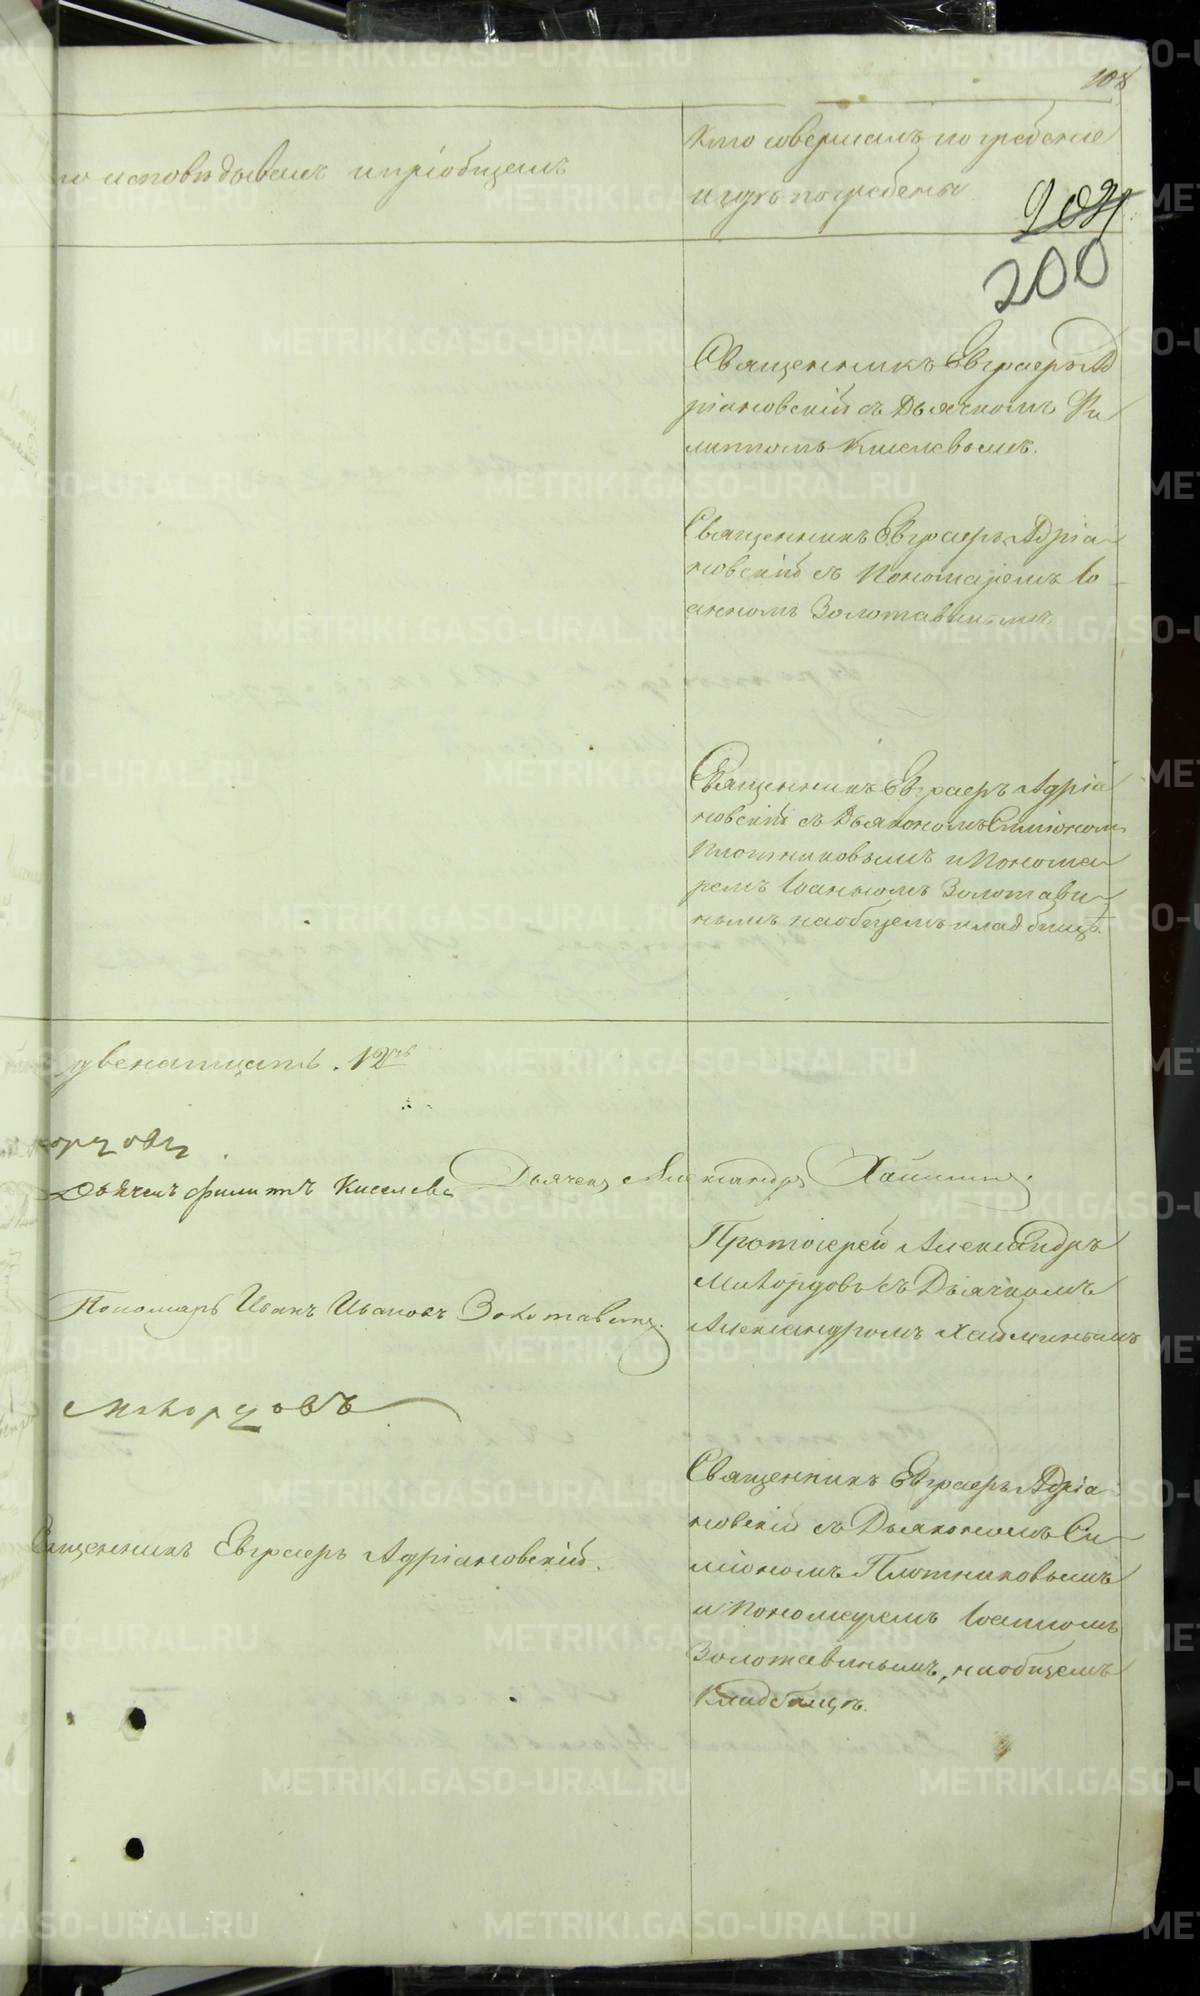 108
то исповѣдывалъ и пріобщалъ
Кто совершалъ погребеніе
и гдѣ погребены
200
Священникъ Евграфъ Ад
ріановскій съ Дьячкомъ Фи
липпомъ Киселевымъ.
Священникъ Евграфъ Адріа-
новскій съ Пономаремъ Іо-
анномъ Золотавинымъ
Священникъ Евграфъ Адріа
новскій съ Дьякономъ Симіоном
Плотниковымъ и Понома-
ремъ Іоанномъ Золотави-
нымъ на общемъ кладбищѣ.
двенатцать. 12ть
Дьячекъ Филиппъ Киселевъ Дьячекъ Александръ Хайминъ.
Протоіерей Александръ
Милордовъ съ Дьячкомъ
Александромъ Хайминымъ
Пономарь Иванъ Ивановъ Золотавинъ.
Милордовъ
Священникъ Евграфъ Адріа-
новскій съ Дьякономъ Си-
міономъ Плотниковымъ
и Пономаремъ Іоанномъ
Золотавинымъ, на общемъ
Кладбищѣ.
Священникъ Евграфъ Адріановскій.
METRIKI.GASO-URAL.RU